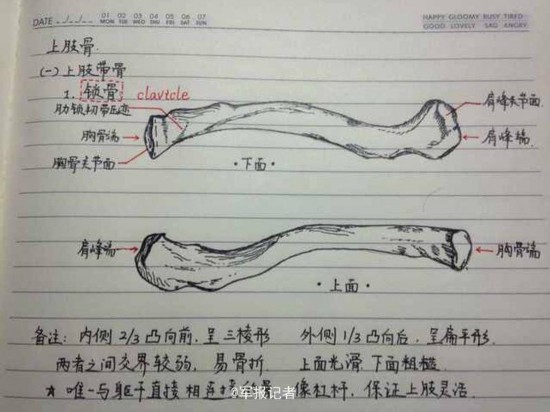 DATE
01 02 03 04 05 06 07
MON TUE WED THU FRI SAT SUN
HAPPY GLOOMY BUSY TIRED
GOOD LOVELY SAD ANGRY
上肢骨
(一)上肢带骨
1. 锁骨 clavicle
肋锁韧带压迹
胸骨端
胸骨关节面
肩峰关节面
肩峰端
·下面·
肩峰端
胸骨端
·上面·
备注: 内侧 2/3 凸向前, 呈三棱形 外侧 1/3 凸向后, 呈扁平形.
两者之间交界较弱, 易骨折. 上面光滑, 下面粗糙.
☆ 唯一与躯干直接相连 像杠杆, 保证上肢灵活.
@军报记者